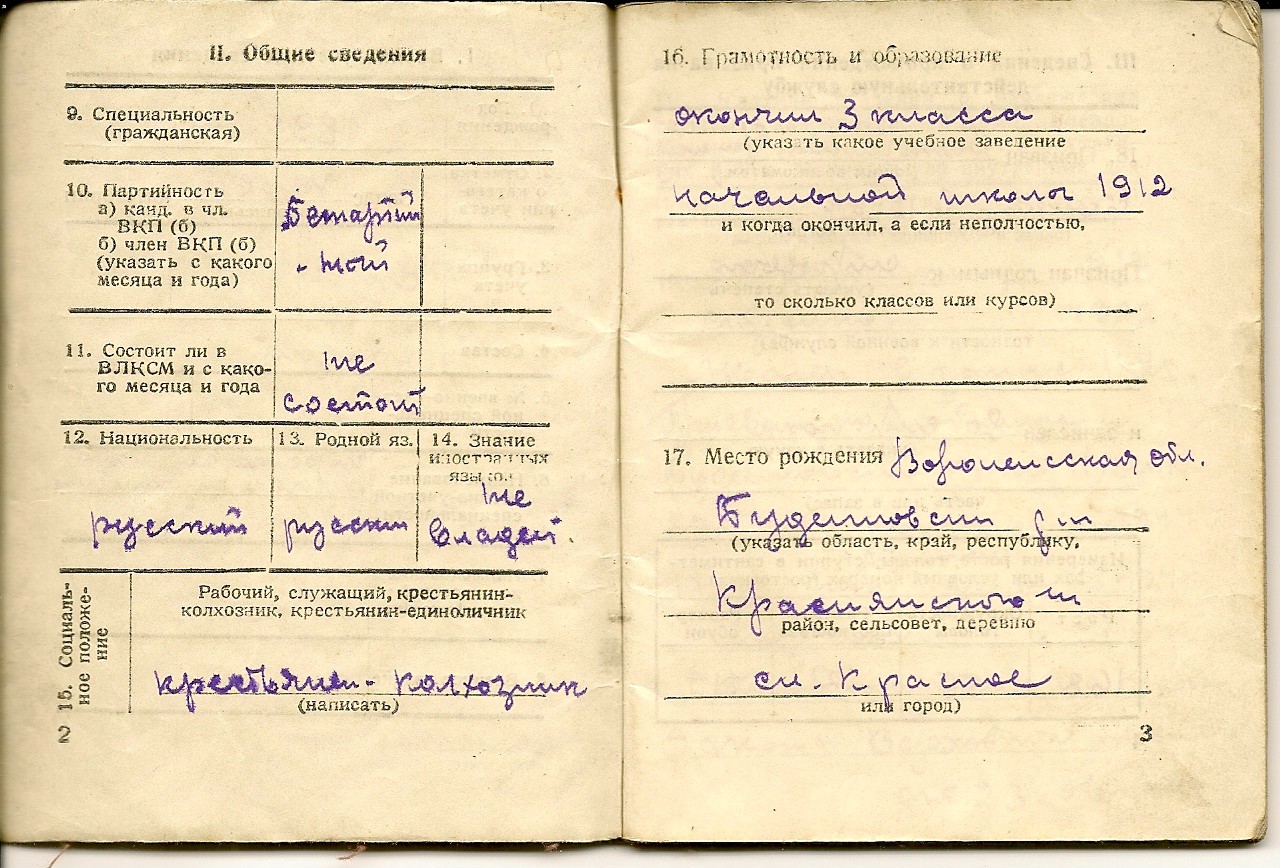 II. Общие сведения
9. Специальность
(гражданская)
10. Партийность
а) канд. в чл.
ВКП (б)
б) член ВКП (б)
(указать с какого
месяца и года)
Беспартий
- ный
11. Состоит ли в
ВЛКСМ и с како-
го месяца и года
не
состоит
12. Национальность
русский
13. Родной яз.
русский
14. Знание
иностранных
языков.
не
владеет.
15. Социаль-
ное положе-
ние
Рабочий, служащий, крестьянин-
колхозник, крестьянин-единоличник
крестьянин - колхозник
(написать)
2
16. Грамотность и образование
окончил 3 класса
(указать какое учебное заведение
начальной школы 1912
и когда окончил, а если неполностью,
то сколько классов или курсов)
17. Место рождения Воронежская обл.
Буденновский р-н
(указать область, край, республику,
Краснянского
район, сельсовет, деревню
сл. Красное
или город)
3